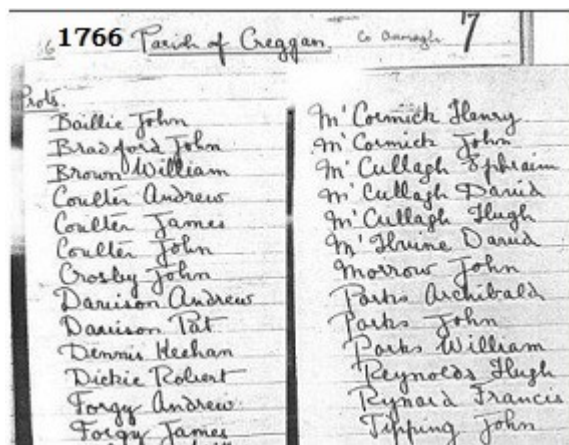 1766 Parish of Creggan Co Armagh 17
Prots.
Baillie John
Bradford John
Brown William
Coulter Andrew
Coulter James
Coulter John
Crosby John
Davison Andrew
Davison Pat
Dennis Heehan
Dickie Robert
Forgy Andrew
Forgy James
McCormick Henry
McCormick John
McCullagh Ephraim
McCullagh David
McCullagh Hugh
McIlvine David
Morrow John
Parks Archibald
Parks John
Parks William
Reynolds Hugh
Rynard Francis
Tipping John